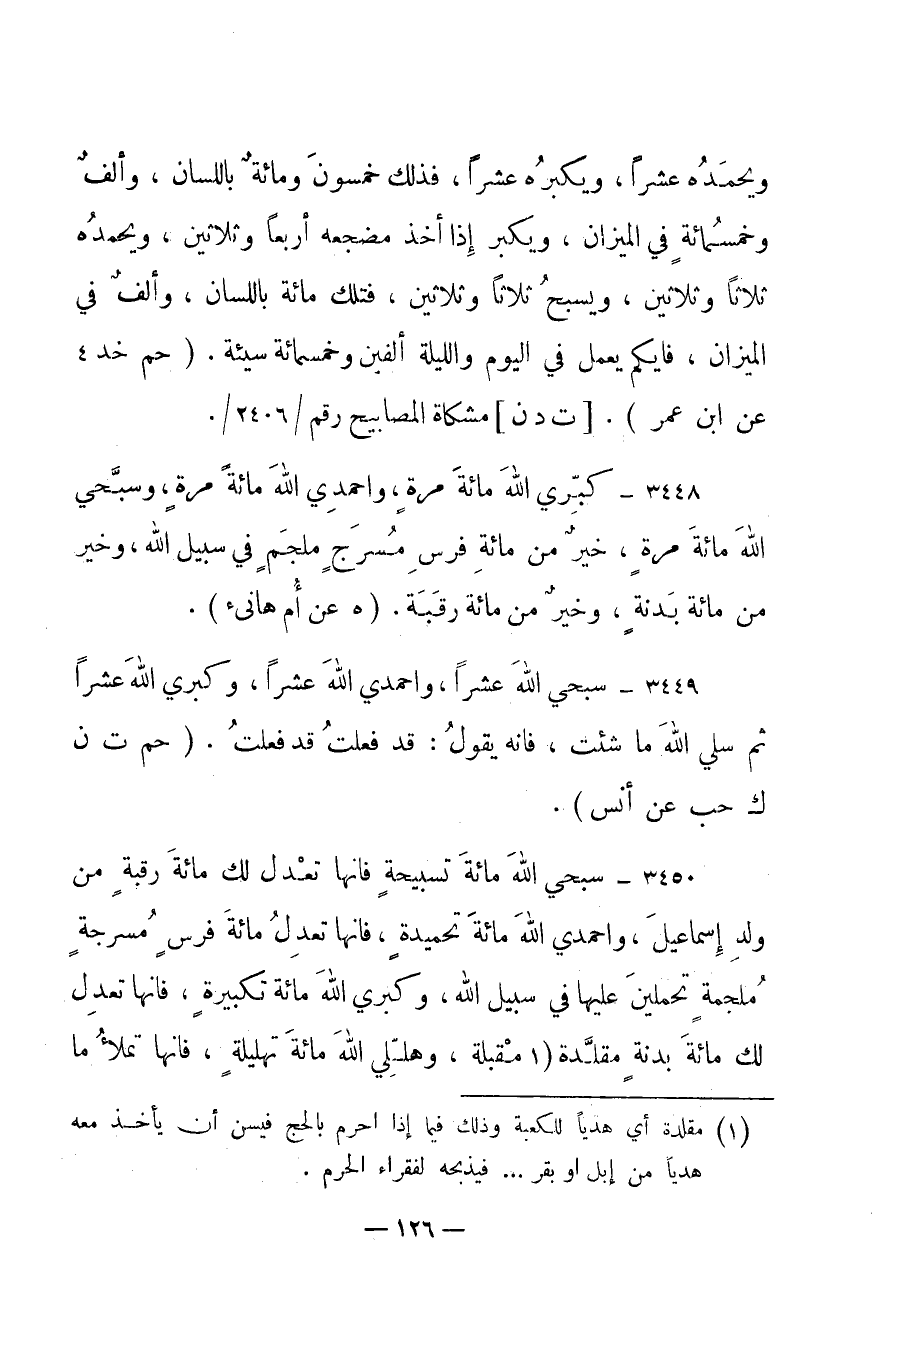 ويحمَدُه عشراً ، ويكبرُه عشراً ، فذلك خمسونَ ومائةٌ باللسان ، وألفٌ
وخمسُمائةٍ في الميزان ، ويكبر إِذا أخذ مضجعه أربعاً وثلاثين ، ويحمدُه
ثلاثاً وثلاثين ، ويسبحُ ثلاثاً وثلاثين ، فتلك مائة باللسان ، وألفٌ في
الميزان ، فايكم يعمل في اليوم والليلة ألفين وخمسمائة سيئة . ( حم خد ٤
عن ابن عمر ) . [ ت د ن ] مشكاة المصابيح رقم / ٢٤٠٦ / .
٣٤٤٨ ـ كبّرِي اللهَ مائةَ مرةٍ ، واحمدِي اللهَ مائةً مرةٍ ، وسبَّحي
اللهَ مائةَ مرةٍ ، خيرٌ من مائةِ فرسِ مُسرَجٍ ملجَمٍ في سبيل الله ، وخير
من مائة بَدنةٍ ، وخيرٌ من مائة رقَبَة . ( ه عن أُم هانىء ) .
٣٤٤٩ ـ سبحي اللهَ عشراً ، واحمدي اللهَ عشراً ، وكبري اللهَ عشراً
ثم سلي اللهَ ما شئت ، فانه يقولُ : قد فعلتُ قد فعلتُ . ( حم ت ن
ك حب عن أنس ) .
٣٤٥٠ ـ سبحي اللهَ مائةَ تسبيحةٍ فانها تعْدل لك مائةَ رقبةٍ من
ولدِ إِسماعيلَ ، واحمدي اللهَ مائةَ تحميدةٍ ، فانها تعدِلُ مائةَ فرسٍ مُسرجةٍ
مُلجمةٍ تحملينَ عليها في سبيل الله ، وكبري اللهَ مائة تكبيرةٍ ، فانها تعدلِ
لك مائةَ بدنةٍ مقلَّدة (١ متْقبلة ، وهللّي اللهَ مائةَ تهليلةٍ ، فانها تملأُ ما
(١) مقلدة أي هدياً للكعبة وذلك فيما إذا احرم بالحج فيسن أن يأخذ معه
هدياً من إبل او بقر ... فيذبحه لفقراء الحرم .
— ١٢٦ —